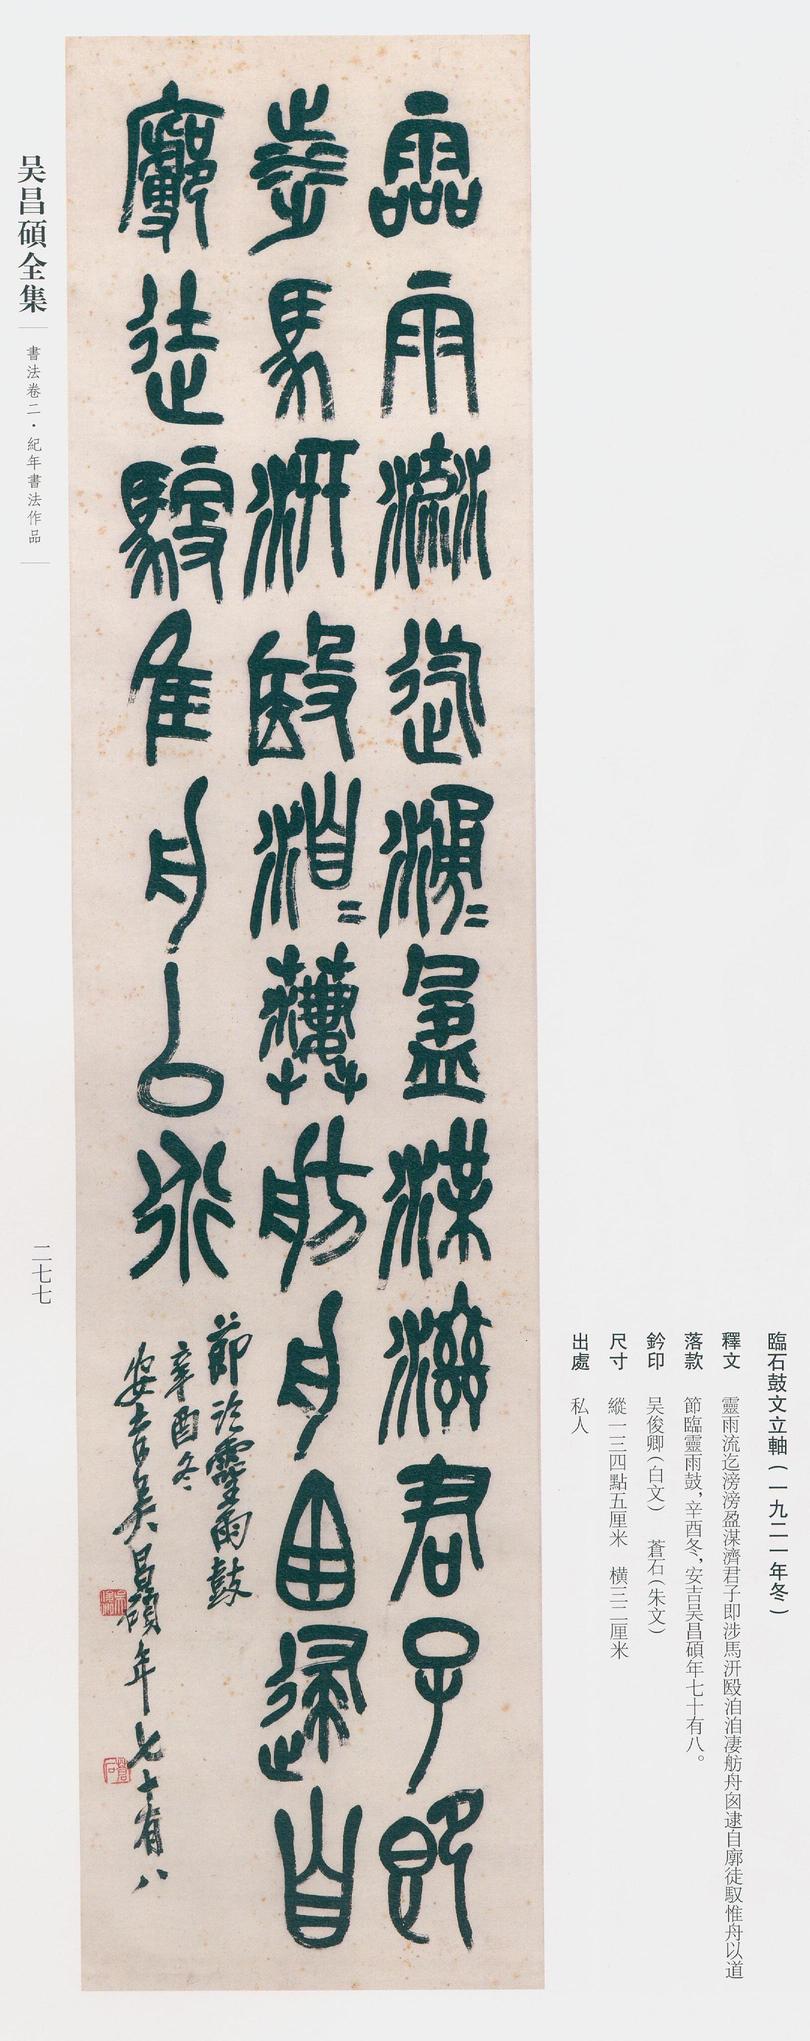 臨石鼓文立軸(一九二一年冬)
釋文 靈雨流迄滂滂盈渫濟君子即涉馬汧殹洎洎凄舫舟囪逮自廓徒馭惟舟以道
落款 節臨靈雨鼓,辛酉冬,安吉吴昌碩年七十有八。
鈐印 吴俊卿(白文) 蒼石(朱文)
尺寸 縱一三四點五厘米 橫三二厘米
出處 私人
霝雨流迄滂=盈渫濟君子即
涉馬汧殹洎=凄舫舟囪逮自
廓徒馭隹舟以道
節臨靈雨鼓
辛酉冬
安吉吳昌碩年七十有八
吴昌碩全集
書法卷二·紀年書法作品
二七七